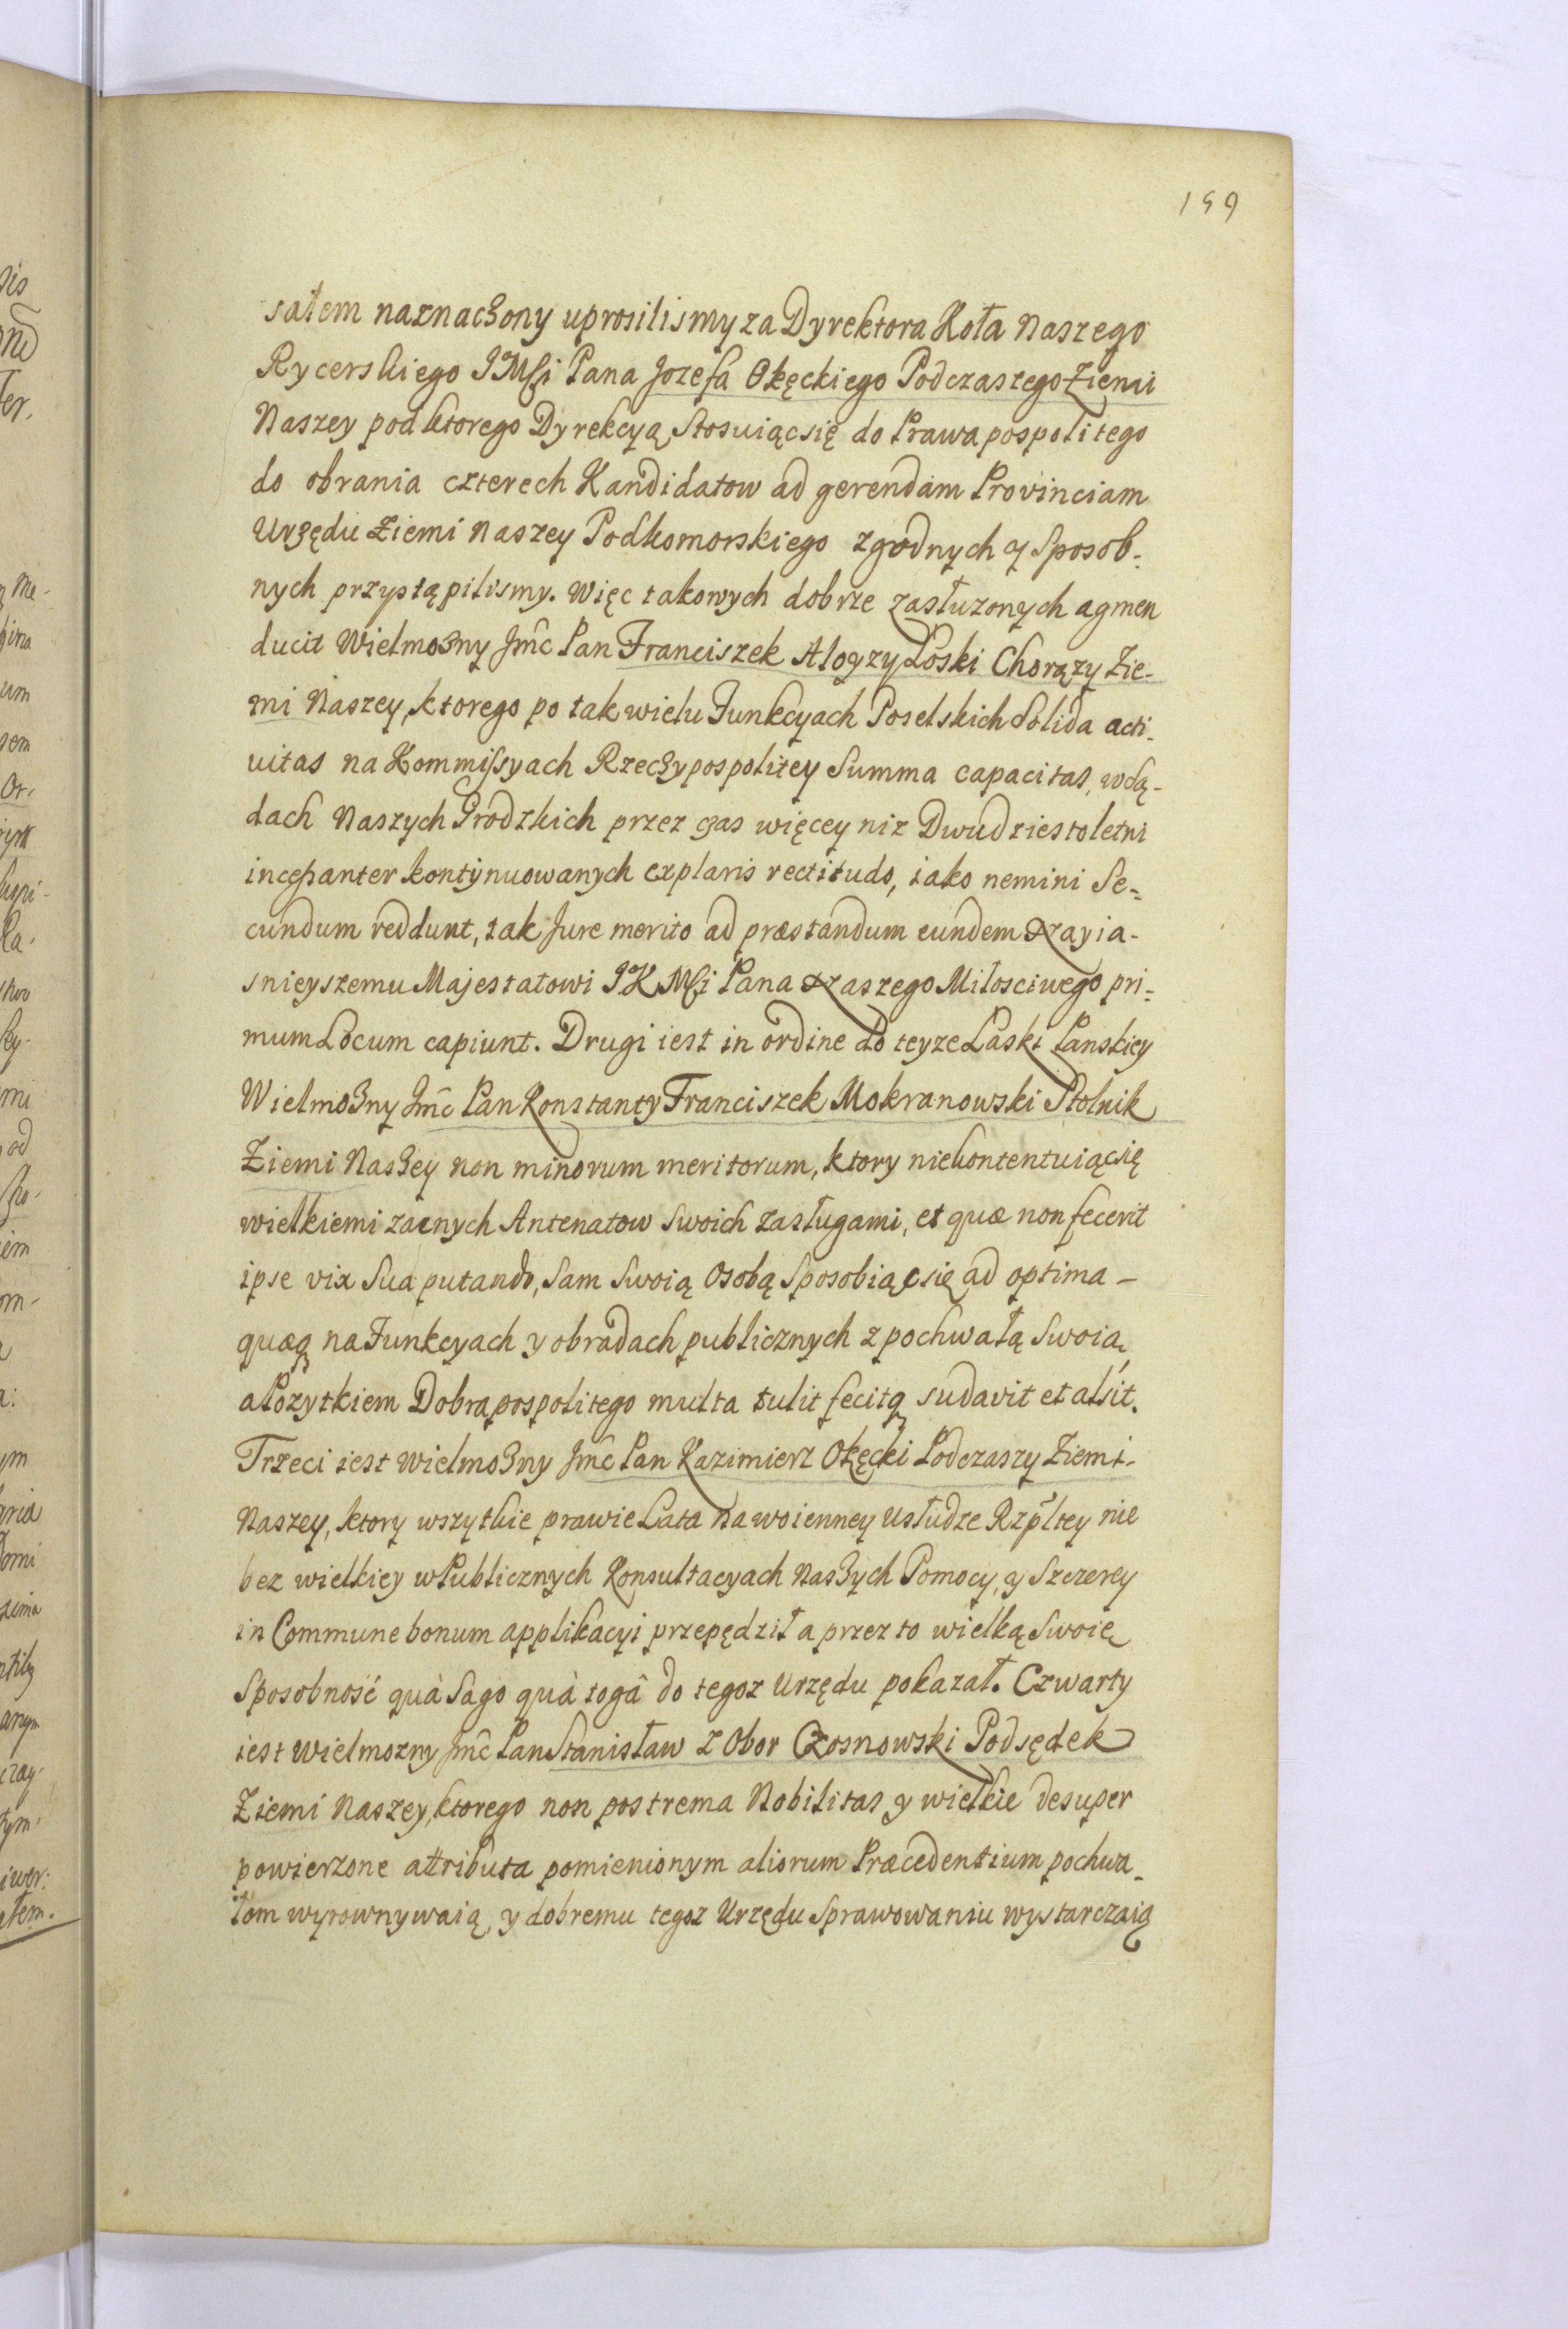 159
sałem naznaczony uprosilismy za Dyrektora Koła Naszego
Rycerskiego JMSi Pana Jozefa Okęckiego Podczaszego Ziemi
Naszey pod ktorego Dyrekcyą Stosuiąc się do Prawa pospolitego
do obrania czterech Kandidatow ad gerendam Provinciam
Urzędu Ziemi Naszey Podkomorskiego zgodnych y Sposob-
nych przystąpilismy. Więc takowych dobrze zasłuzonych agmen
ducit Wielmozny Jmc Pan Franciszek Aloyzy Łoski Chorązy Zie-
mi Naszey, ktorego po tak wielu Funkcyach Poselskich Solida acti-
vitas na Kommissyach Rzeczypospolitey Summa capacitas, w Są-
dach Naszych Grodzkich przez czas więcey niz Dwudziestoletni
incessanter kontynuowanych explaris rectitudo, iako nemini Se-
cundum reddunt, tak Jure merito ad præstandum eundem Nayia-
snieyszemu Majestatowi JKMSi Pana Naszego Miłosciwego pri-
mum Locum capiunt. Drugi iest in ordine do teyze Łaski Panskiey
Wielmozny Jmc Pan Konstanty Franciszek Mokranowski Stolnik
Ziemi Naszey non minorum meritorum, ktory niekontentuiąc się
wielkiemi zacnych Antenatow Swoich zasługami, et quæ non fecerit
ipse vix Sua putando, Sam Swoią Osobą Sposobiąc się ad optima-
quæq na Funkcyach y obradach publicznych z pochwałą Swoią
a Pozytkiem Dobra pospolitego multa tulit fecitq sudavit et alsit.
Trzeci iest Wielmozny Jmc Pan Kazimierz Okęcki Podczaszy Ziemi-
Naszey, ktory wszytkie prawie Lata na woienney Usłudze Rzpltey nie
bez wielkiey w Publicznych Konsultacyach Naszych Pomocy, y Szczerey
in Commune bonum applikacyi przepędził a przez to wielką Swoię
Sposobność quà Sago quà togâ do tegoz Urzędu pokazał. Czwarty
iest Wielmozny Jmc Pan Stanisław z Obor Czosnowski Podsędek
Ziemi Naszey, ktorego non postrema Nobilitas y wielkie desuper
powierzone attributa pomienionym aliorum Præcedentium pochwa-
łom wyrownywaią, y dobremu tegoz Urzędu Sprawowaniu wystarczaią